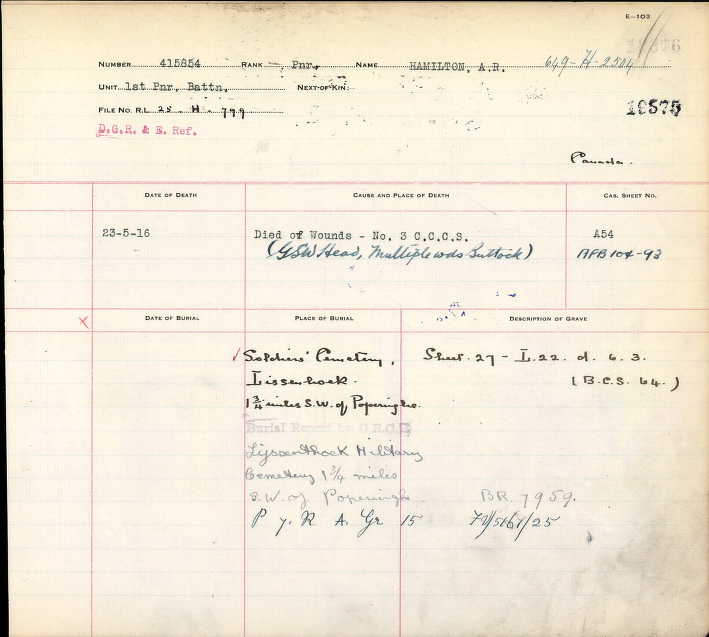 E-103
NUMBER 415854 RANK Pnr. NAME HAMILTON, A.R. 649-H-2504
UNIT 1st Pnr. Battn. NEXT-OF-KIN:
FILE NO. R.L. 25. H. 799
10575
D.G.R. & E. Ref.
Canada.
DATE OF DEATH CAUSE AND PLACE OF DEATH CAS. SHEET NO.
23-5-16 Died of Wounds - No. 3 C.C.C.S. A54
(GSW Head, Multiple wds Buttock) AFB 104-93
DATE OF BURIAL PLACE OF BURIAL DESCRIPTION OF GRAVE
Soldiers' Cemetery, Sheet. 27 - L. 22. d. 6. 3.
Lissenhoek. (B.C.S. 64.)
1 3/4 miles S.W. of Poperinghe.
Burial Report by G.R.C.
Lijssenthoek Military
Cemetery 1 3/4 miles
S.W. of Poperinghe. BR 7959.
A. Gr 15